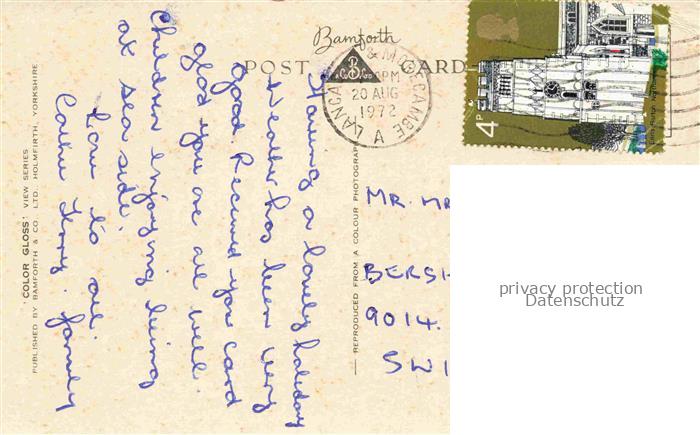 Bamforth
POST CARD
'COLOR GLOSS' VIEW SERIES
PUBLISHED BY BAMFORTH & CO. LTD. HOLMFIRTH, YORKSHIRE
REPRODUCED FROM A COLOUR PHOTOGRAPH
B
& MORECAMBE
PM
20 AUG
1972
A
4P
Having a lovely holiday
Weather has been very
good. Received your card
glad you are all well.
Children enjoying being
at sea side.
Love to all.
Terry. family
MR. MR
BERSH
9014.
SWI
privacy protection
Datenschutz